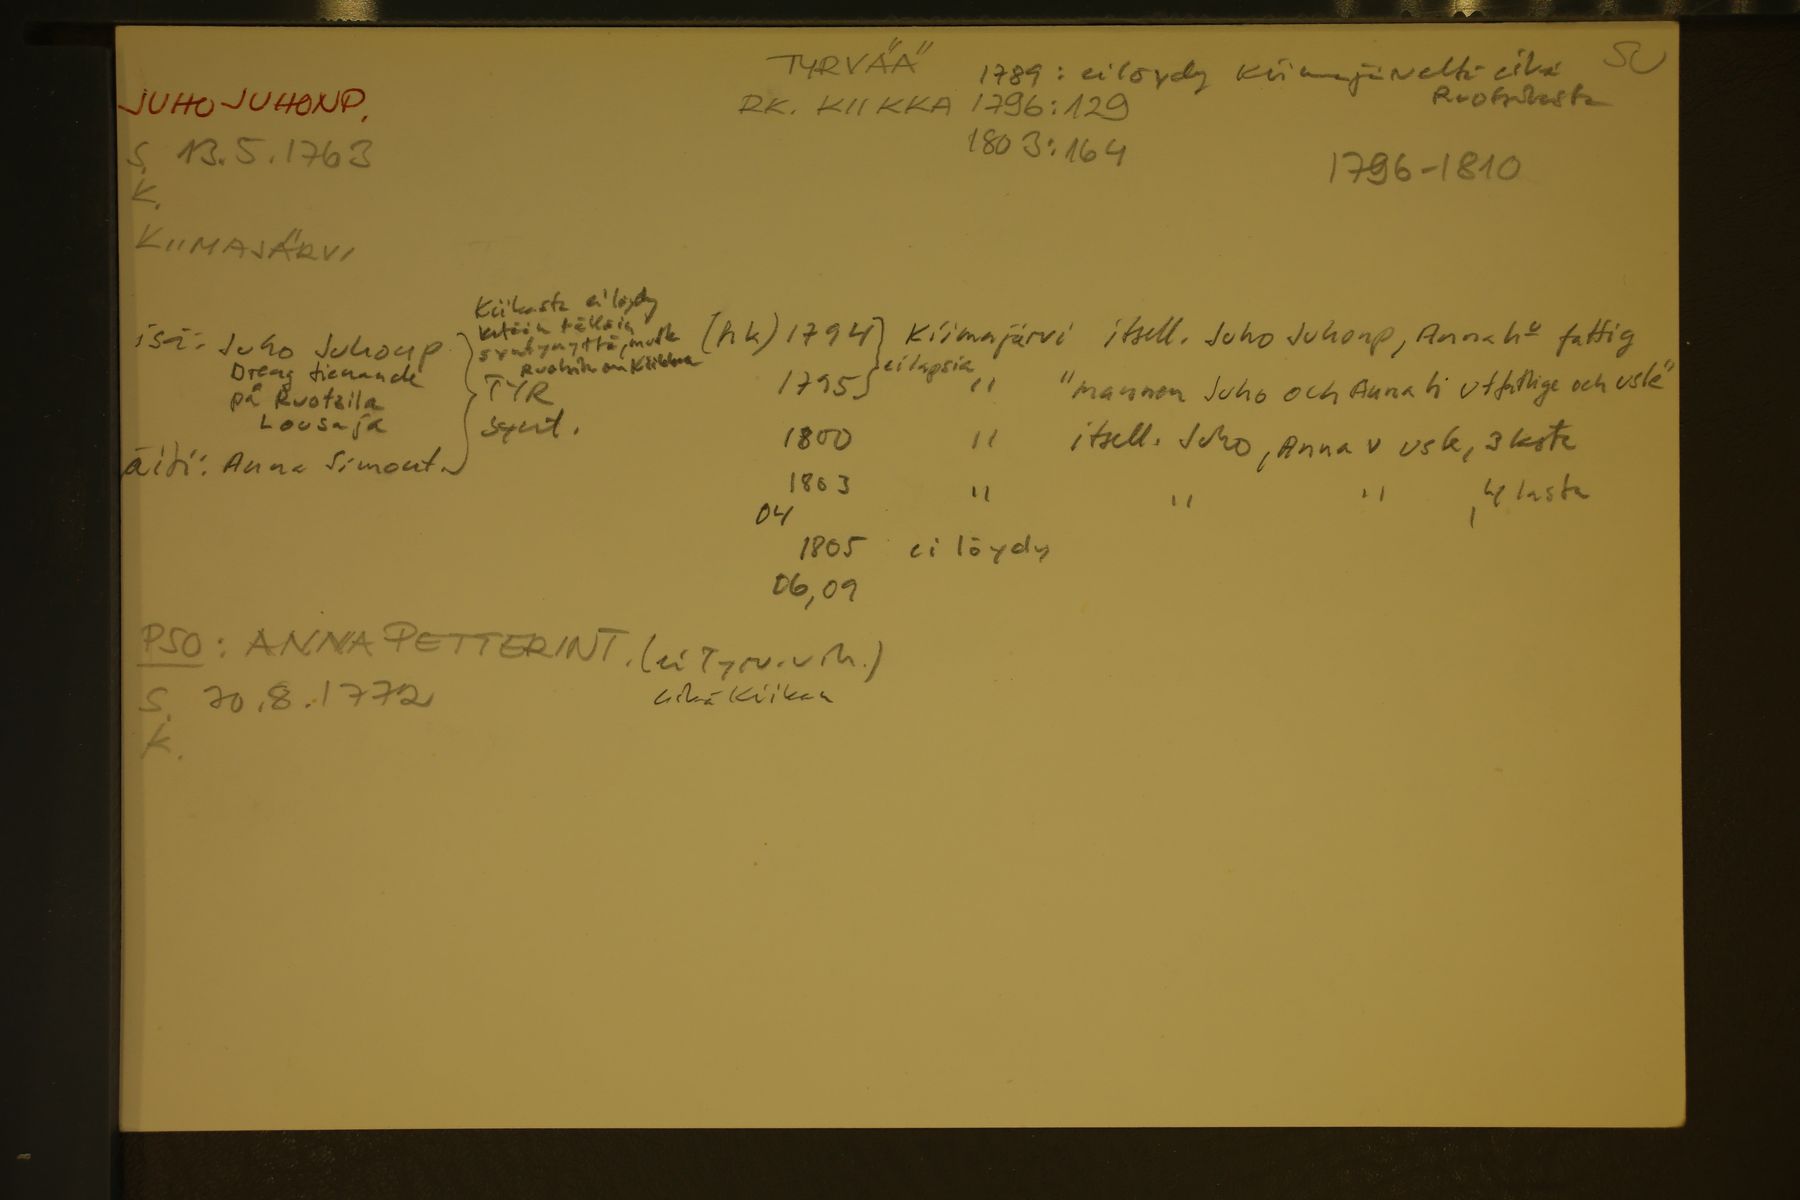 TYRVÄÄ
SU
1789: ei löydy Kiimajärveltä eikä
Ruotsilasta
JUHO JUHONP.
RK. KIIKKA 1796:129
1803:164
S. 13.5.1763
1796-1810
K.
KIIMAJÄRVI
Kiikasta ei löydy
ketään tällöin
syntynyttä, mutt
Ruotsila on Kiikkaa
isä: Juho Juhonp.
Dreng tienande
på Ruotsila
Lousaja
äiti: Anna Simont.
TYR
synt.
(hk) 1794 Kiimajärvi itsell. Juho Juhonp, Anna hu fattig
ei lapsia
1795 " "mannen Juho och Anna h utfattige och usle"
1800 " itsell. Juho, Anna v usle, 3 lasta
1803 " " " , 4 lasta
04
1805 ei löydy
06,09
PSO: ANNA PETTERINT. (ei Tyrv. vih.)
eikä Kiikan
S. 20.8.1772
K.